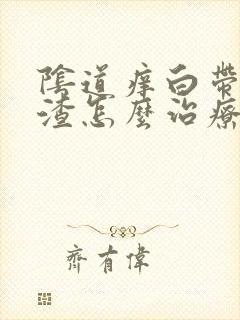 陰道痒白帶
渣怎麼治療
齊有偉